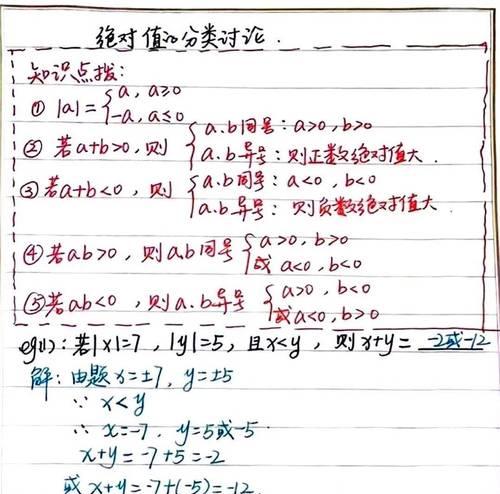 绝对值的分类讨论.
知识点拨:
① |a|={a, a≥0
-a, a≤0
② 若a+b>0, 则{a.b同号: a>0, b>0
a.b异号: 则正数绝对值大.
③ 若a+b<0, 则{a.b同号: a<0, b<0
a.b异号: 则负数绝对值大.
④ 若ab>0, 则a.b同号{a>0, b>0
或 a<0, b<0
⑤ 若ab<0, 则a.b异号{a>0, b<0
或a<0, b>0
eg(1): 若|x|=7, |y|=5, 且x<y, 则x+y= -2或-12
解: 由题x=±7, y=±5
∵ x<y
∴ x=-7, y=5或-5.
x+y=-7+5=-2
或 x+y=-7+(-5)=-12.